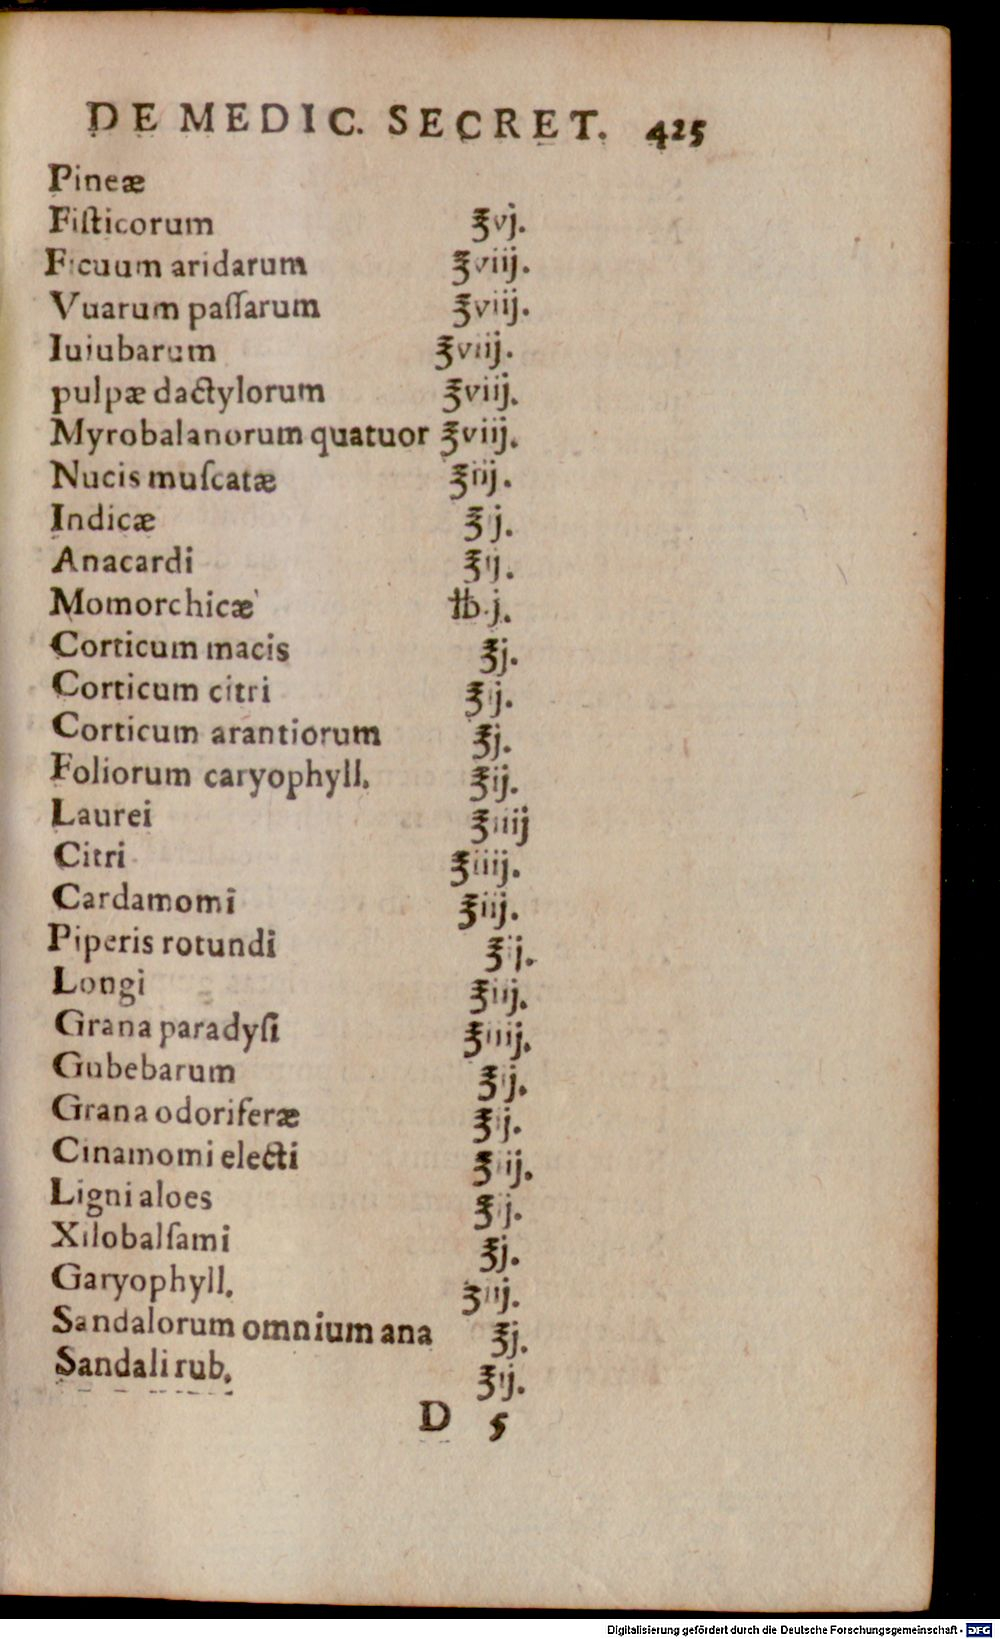 DE MEDIC. SECRET. 425
Pineæ
Fiſticorum ℥vj.
Ficuum aridarum ℥viij.
Vuarum paſſarum ℥viij.
Iuiubarum ℥viij.
pulpæ dactylorum ℥viij.
Myrobalanorum quatuor ℥viij.
Nucis muſcatæ ℥iij.
Indicæ ℥ij.
Anacardi ℥ij.
Momorchicæ ℔.j.
Corticum macis ℥j.
Corticum citri ℥ij.
Corticum arantiorum ℥j.
Foliorum caryophyll. ℥ij.
Laurei ℥iiij
Citri ℥iiij.
Cardamomi ℥iij.
Piperis rotundi ℥ij.
Longi ℥iij.
Grana paradyſi ℥iiij.
Gubebarum ℥ij.
Grana odoriferæ ℥ij.
Cinamomi electi ℥iij.
Ligni aloes ℥ij.
Xilobalſami ℥j.
Garyophyll. ℥iij.
Sandalorum omnium ana ℥j.
Sandali rub. ℥ij.
D 5
Digitalisierung gefördert durch die Deutsche Forschungsgemeinschaft - DFG